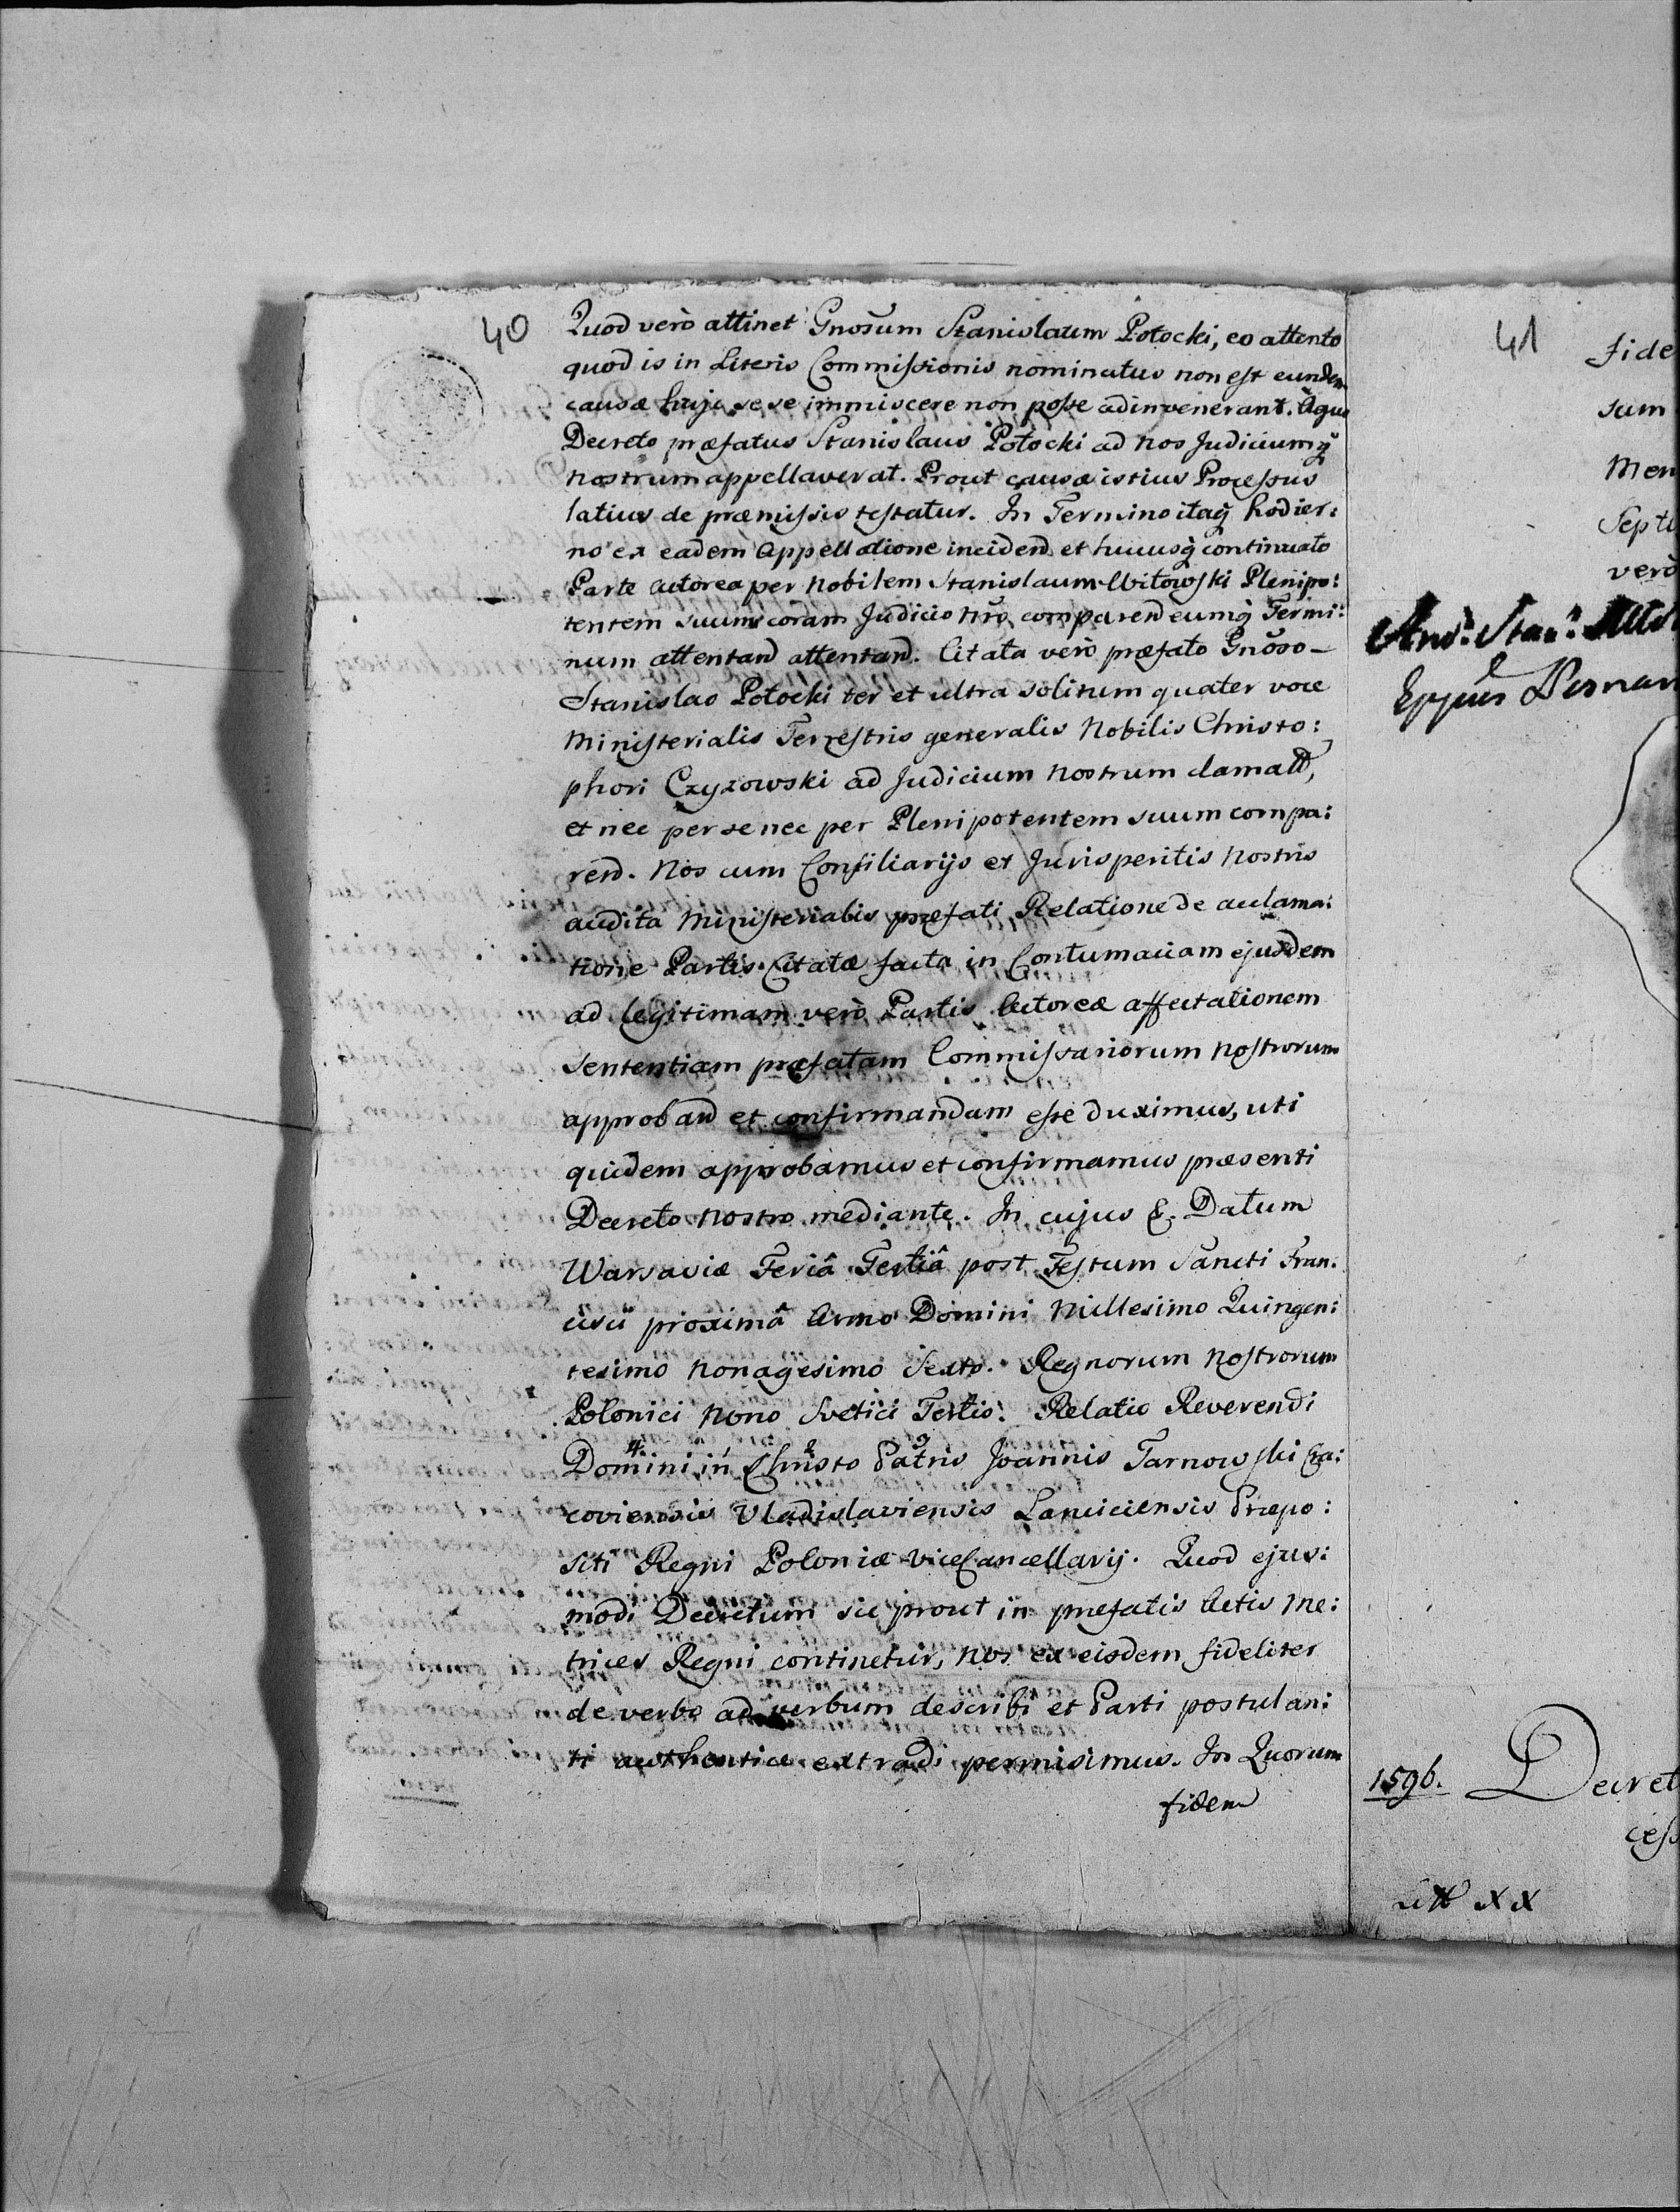 40
Quod verò attinet Gnosum Stanislaum Potocki, eo attento
quod is in Literis Commissionis nominatus non est eundem
causæ huic se se immiscere non posse adinvenerant. A quo
Decreto præfatus Stanislaus Potocki ad Nos Judiciumq̃
Nostrum appellaverat. Prout causæ istius Processus
latius de præmissis testatur. In Termino itaq̃ hodier:
no ex eadem Appellatione inciden̄ et hucusq̃ continuato
Parte Actorea per Nobilem Stanislaum Witowski Plenipo:
tentem suum coram Judicio Nrõ comparen̄ eumq̃ Termi:
num attentan̄ attentan̄. Citata verò præfato Gnõso
Stanislao Potocki ter et ultra solitum quater voce
Ministerialis Terrestris generalis Nobilis Christo:
phori Czyzowski ad Judicium Nostrum clamatt,
et nec per se nec per Plenipotentem suum compa:
ren̄. Nos cum Consiliarijs et Jurisperitis Nostris
audita Ministerialis præfati Relatione de acclama:
tione Partis Citatæ facta in Contumaciam ejusdem
ad legitimam verò Partis Actoreæ affectationem
Sententiam præfatam Commissariorum Nostrorum
approban̄ et confirmandam esse duximus, uti
quidem approbamus et confirmamus præsenti
Decreto Nostro mediante. In cujus &. Datum
Warsaviæ Feriâ Tertiâ post Festum Sancti Fran:
cisci proximâ Anno Domini Millesimo Quingen:
tesimo Nonagesimo Sexto. Regnorum Nostrorum
Polonici Nono Svetici Tertio. Relatio Reverendi
Domini in Christo Patris Joannis Tarnowski Cra:
coviensis Vladislaviensis Lanciciensis Præpo:
siti Regni Poloniæ ViceCancellarij. Quod ejus:
modi Decretum sic prout in præfatis Actis Me:
trices Regni continetur, Nos ex eisdem fideliter
de verbo ad verbum describi et Parti postulan:
ti authentice extradi permisimus. In Quorum
fidem
41
fide
sum
Men
Septi
verò
Eppus
1596. Decret
cess
Litt XX